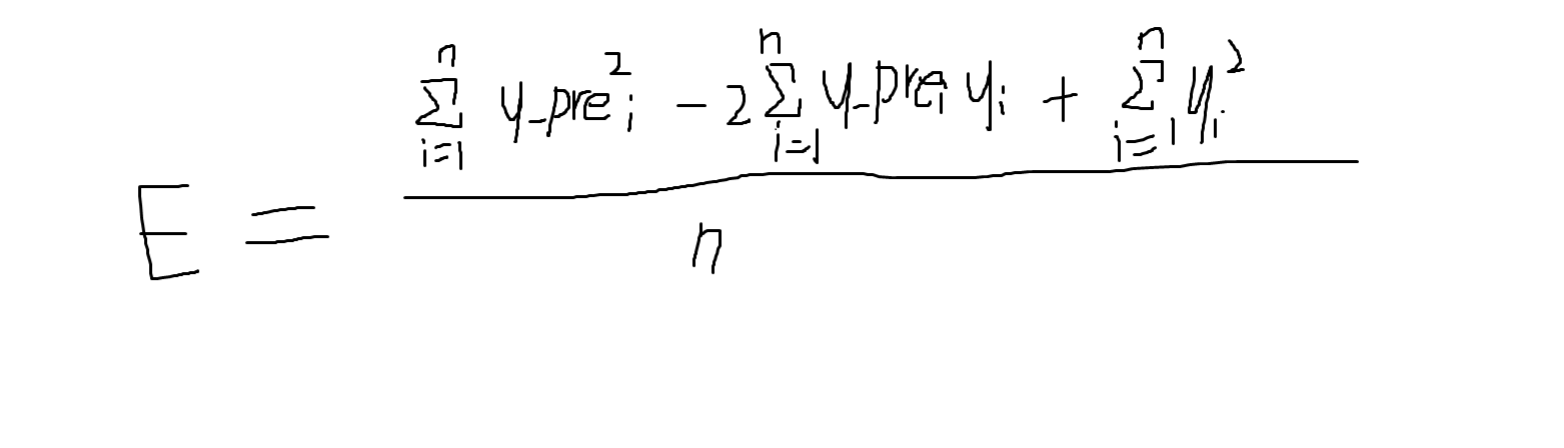 E = \frac{\sum_{i=1}^{n} y\_pre_i^2 - 2\sum_{i=1}^{n} y\_pre_i y_i + \sum_{i=1}^{n} y_i^2}{n}